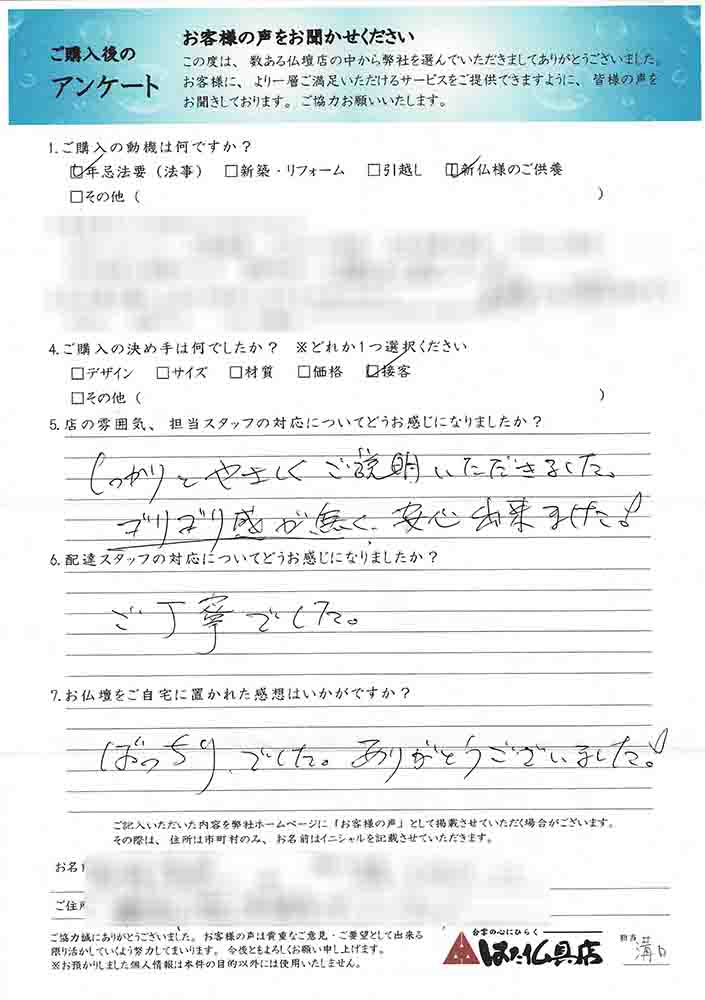 ご購入後の
アンケート
お客様の声をお聞かせください
この度は、数ある仏壇店の中から弊社を選んでいただきましてありがとうございました。
お客様に、より一層ご満足いただけるサービスをご提供できますように、皆様の声を
お聞きしております。ご協力お願いいたします。
1.ご購入の動機は何ですか？
☑年忌法要（法事） □新築・リフォーム □引越し ☑新仏様のご供養
□その他（ ）
4.ご購入の決め手は何でしたか？ ※どれか1つ選択ください
□デザイン □サイズ □材質 □価格 ☑接客
□その他（ ）
5.店の雰囲気、担当スタッフの対応についてどうお感じになりましたか？
しっかりとやさしくご説明いただきました。
ゴリゴリ感が無く、安心出来ました!
6.配達スタッフの対応についてどうお感じになりましたか？
ご丁寧でした。
7.お仏壇をご自宅に置かれた感想はいかがですか？
ばっちりでした。ありがとうございました!
ご記入いただいた内容を弊社ホームページに「お客様の声」として掲載させていただく場合がございます。
その際は、住所は市町村のみ、お名前はイニシャルを記載させていただきます。
お名
ご住
ご協力誠にありがとうございました。お客様の声は貴重なご意見・ご要望として出来る
限り活かしていくよう努力してまいります。今後ともよろしくお願い申し上げます。
※お預かりしました個人情報は本件の目的以外には使用いたしません。
合掌の心にひらく
はた仏具店
担当
溝口